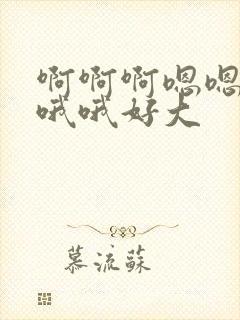 啊啊啊嗯嗯
哦哦好大
慕流苏